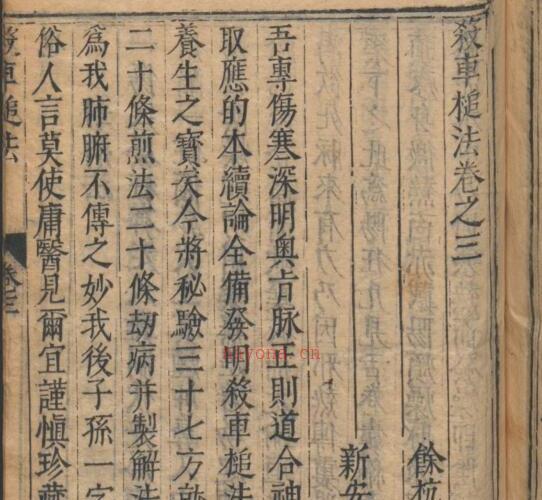 殺車槌法卷之三
餘杭
新安
吾專傷寒深明奧旨脉正則道合神
取應的本續論全備發明殺車槌法
養生之寶矣今將秘驗三十七方就
二十條煎法二十條劫病并製解法
爲我肺腑不傳之妙我後子孫一字
俗人言莫使庸醫見爾宜謹愼珍藏
殺車槌法 卷三